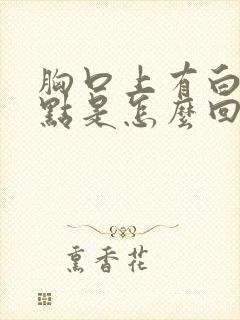 胸口上有白
點是怎麼回
熏香花